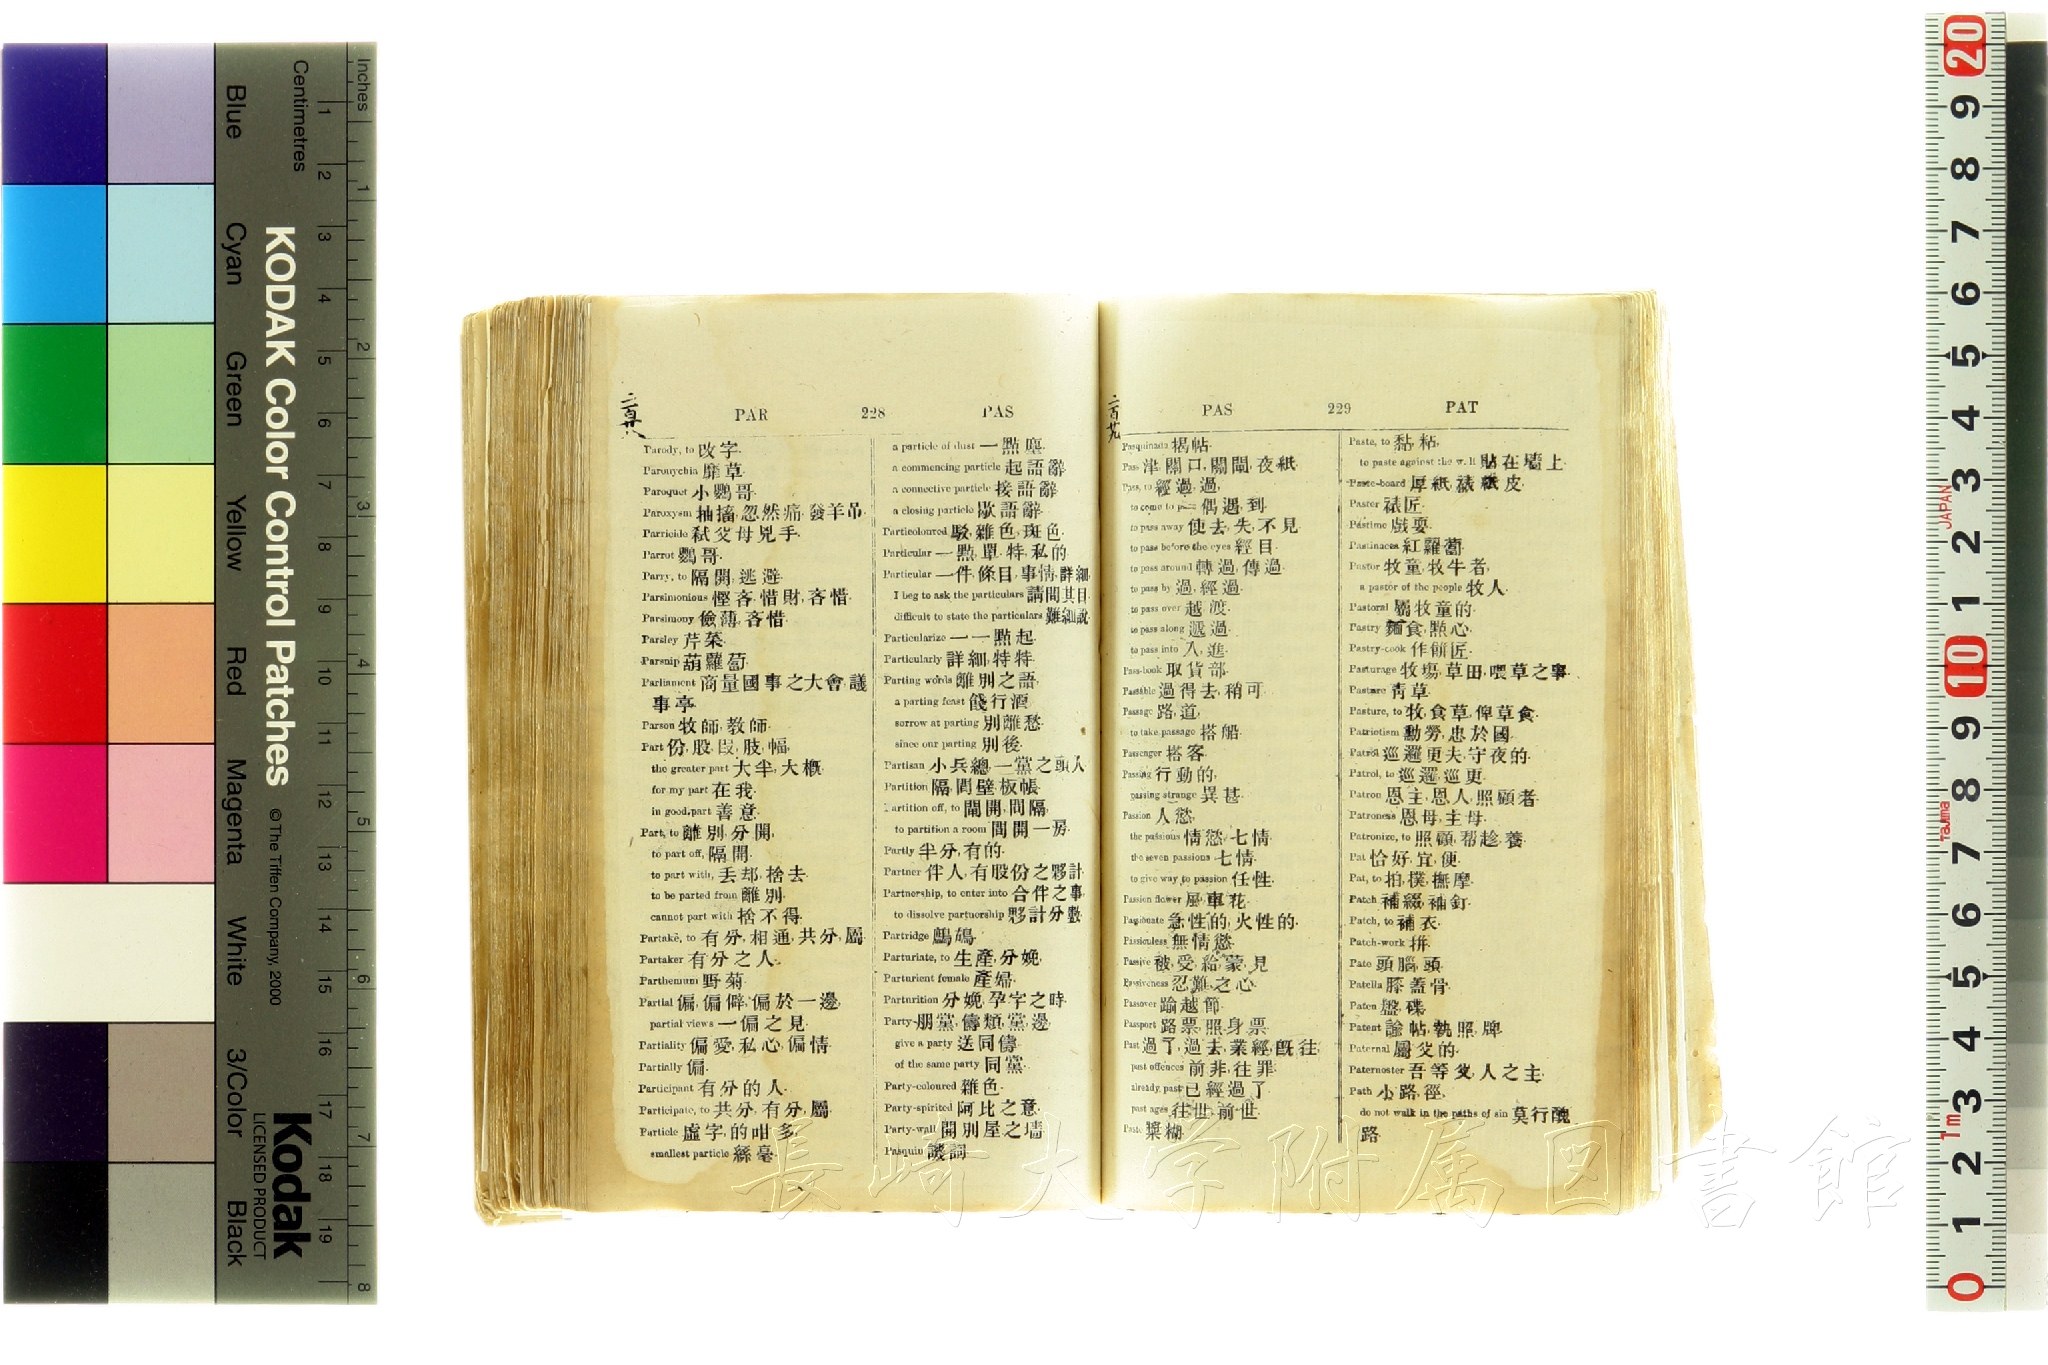 Inches
Centimetres
KODAK Color Control Patches
© The Tiffen Company, 2000
Kodak
LICENSED PRODUCT
Blue
Cyan
Green
Yellow
Red
Magenta
White
3/Color
Black
PAR 228 PAS
Parody, to 改字.
Paronychia 靡草.
Paroquet 小鸚哥.
Paroxysm 抽搐, 忽然痛, 發羊吊.
Parricide 弑父母兇手.
Parrot 鸚哥.
Parry, to 隔開, 逃避.
Parsimonious 慳吝, 惜財, 吝惜.
Parsimony 儉薄, 吝惜.
Parsley 芹菜.
Parsnip 葫蘿蔔.
Parliament 商量國事之大會, 議
事亭.
Parson 牧師, 教師.
Part 份, 股, 段, 肢, 幅.
the greater part 大半, 大概.
for my part 在我.
in good part 善意.
Part, to 離別, 分開.
to part off, 隔開.
to part with, 丢却, 捨去.
to be parted from 離別.
cannot part with 捨不得.
Partake, to 有分, 相通, 共分, 屬.
Partaker 有分之人.
Parthenium 野菊.
Partial 偏, 偏僻, 偏於一邊.
partial views 一偏之見.
Partiality 偏愛, 私心, 偏情.
Partially 偏.
Participant 有分的人.
Participate, to 共分, 有分, 屬.
Particle 虛字, 的咁多.
smallest particle 絲毫.
a particle of dust 一點塵.
a commencing particle 起語辭.
a connective particle 接語辭.
a closing particle 歇語辭.
Particoloured 駁, 雜色, 斑色.
Particular 一點, 單, 特, 私的.
Particular 一件, 條目, 事情, 詳細.
I beg to ask the particulars 請問其目.
difficult to state the particulars 難細說.
Particularize 一一點起.
Particularly 詳細, 特特.
Parting words 離別之語.
a parting feast 餞行酒.
sorrow at parting 別離愁.
since our parting 別後.
Partisan 小兵總, 一黨之頭人.
Partition 隔, 間壁, 板帳.
Partition off, to 閘開, 間隔.
to partition a room 間開一房.
Partly 半分, 有的.
Partner 伴人, 有股份之夥計.
Partnership, to enter into 合伴之事.
to dissolve partnership 夥計分數.
Partridge 鷓鴣.
Parturiate, to 生產, 分娩.
Parturient female 產婦.
Parturition 分娩, 孕字之時.
Party 朋黨, 儔類, 黨, 邊.
give a party 送同儔.
of the same party 同黨.
Party-coloured 雜色.
Party-spirited 阿比之意.
Party-wall 開別屋之墻.
Pasquin 譏詞.
PAS 229 PAT
Pasquinade 揭帖.
Pass 津, 關口, 關閘, 夜紙.
Pass, to 經過, 過.
to come to pass 偶遇, 到.
to pass away 使去, 失, 不見.
to pass before the eyes 經目.
to pass around 轉過, 傳過.
to pass by 過, 經過.
to pass over 越, 渡.
to pass along 遞過.
to pass into 入, 進.
Pass-book 取貨部.
Passable 過得去, 稍可.
Passage 路, 道.
to take passage 搭船.
Passenger 搭客.
Passing 行動的.
passing strange 異甚.
Passion 人慾.
the passions 情慾, 七情.
the seven passions 七情.
to give way to passion 任性.
Passion flower 風車花.
Passionate 急性的, 火性的.
Passionless 無情慾.
Passive 被, 受, 給, 蒙, 見.
Passiveness 忍難之心.
Passover 踰越節.
Passport 路票, 照身票.
Past 過了, 過去, 業經, 既往.
past offences 前非, 往罪.
already past 已經過了.
past ages 往世, 前世.
Paste 漿糊.
Paste, to 黏, 粘.
to paste against the wall 貼在墻上.
Paste-board 厚紙, 裱紙皮.
Paster 裱匠.
Pastime 戲耍.
Pastinaces 紅蘿蔔.
Pastor 牧童, 牧牛者.
a pastor of the people 牧人.
Pastoral 屬牧童的.
Pastry 麵食, 點心.
Pastry-cook 作餅匠.
Pasturage 牧塲, 草田, 喂草之事.
Pasture 青草.
Pasture, to 牧, 食草, 俾草食.
Patriotism 勳勞, 忠於國.
Patrol 巡邏, 更夫, 守夜的.
Patrol, to 巡邏, 巡更.
Patron 恩主, 恩人, 照顧者.
Patroness 恩母, 主母.
Patronize, to 照顧, 帮趁, 養.
Pat 恰好, 宜, 便.
Pat, to 拍, 撲, 撫摩.
Patch 補綴, 補釘.
Patch, to 補衣.
Patch-work 拼.
Pate 頭腦, 頭.
Patella 膝蓋骨.
Paten 盤, 碟.
Patent 諭帖, 執照, 牌.
Paternal 屬父的.
Paternoster 吾等父, 人之主.
Path 小路, 徑.
do not walk in the paths of sin 莫行醜
路.
長崎大学附属図書館
JAPAN
Tajima
1m